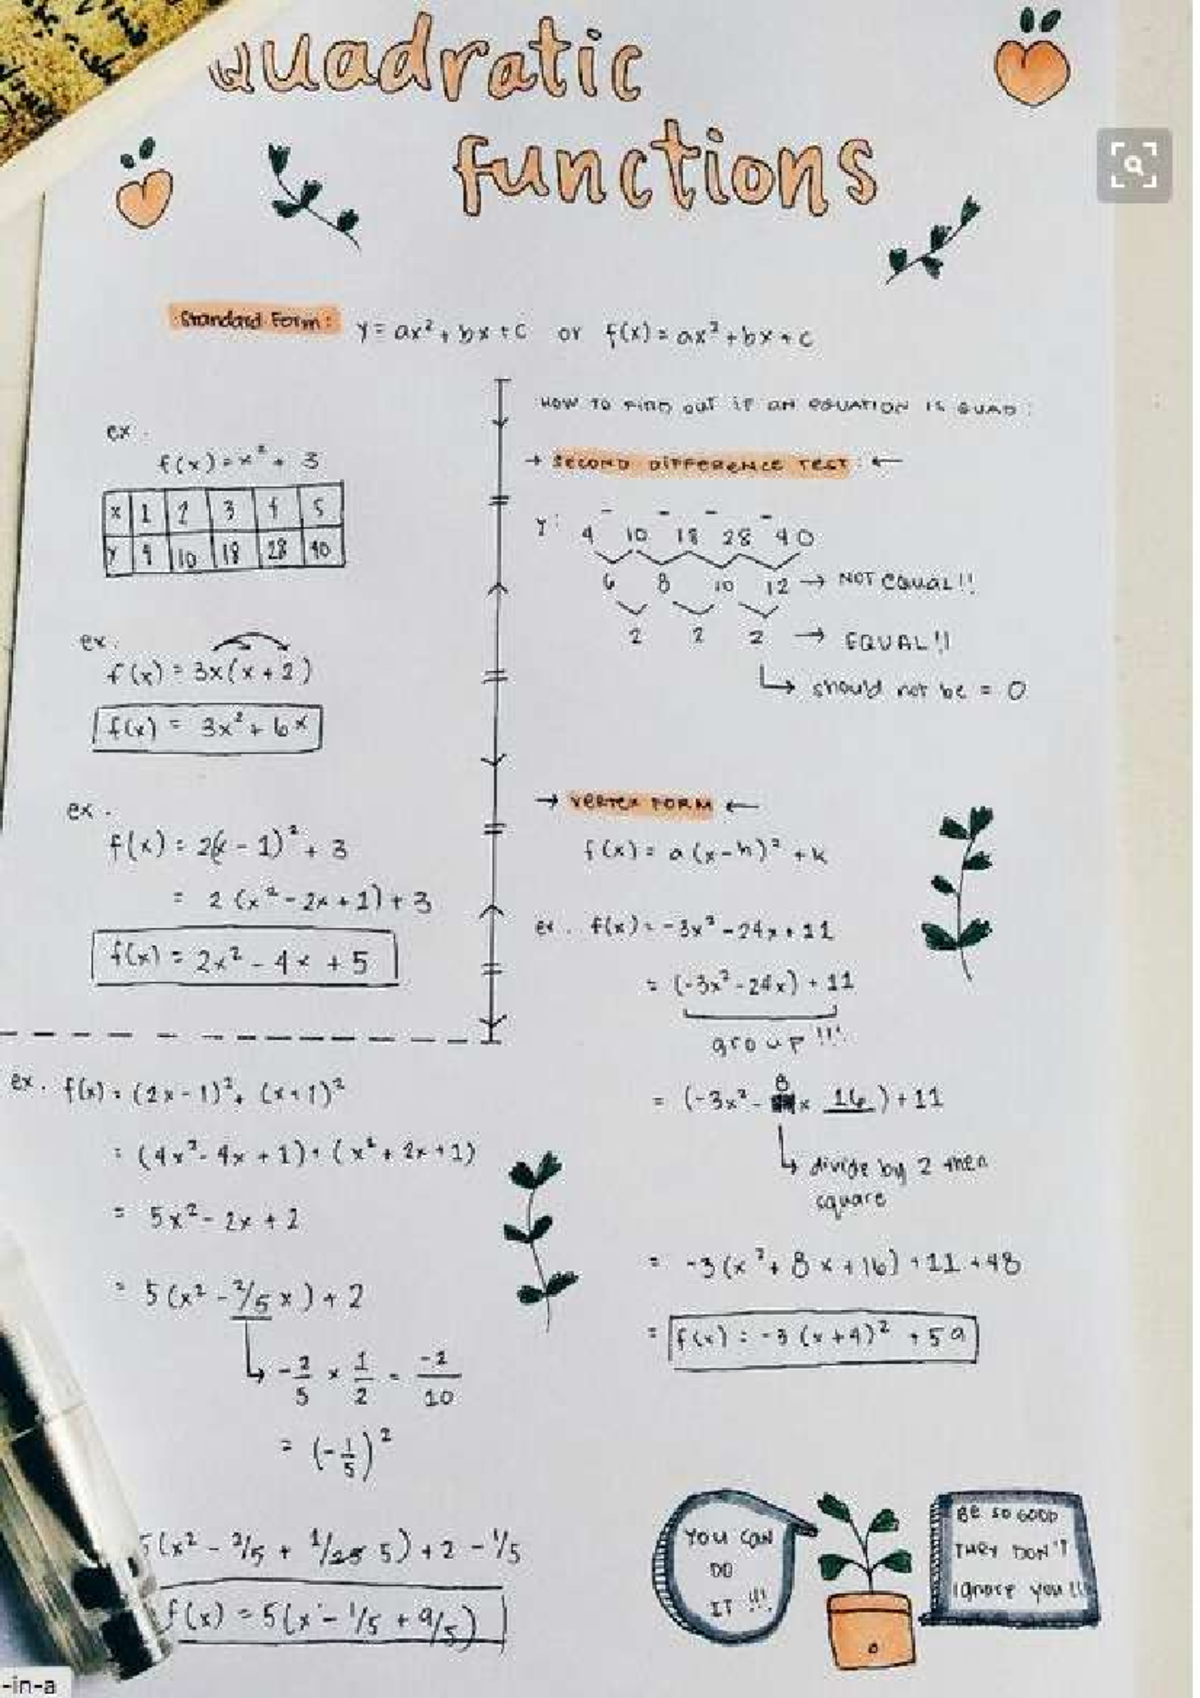 Quadratic
functions
Standard Form: y = ax² + bx + c or f(x) = ax² + bx + c
ex.
f(x) = x² + 3
x 1 2 3 4 5
y 4 10 18 28 40
ex.
f(x) = 3x(x + 2)
f(x) = 3x² + 6x
ex.
f(x) = 2(x - 1)² + 3
= 2(x² - 2x + 1) + 3
f(x) = 2x² - 4x + 5
HOW TO FIND OUT IF AN EQUATION IS QUAD:
→ SECOND DIFFERENCE TEST: ←
y: 4 - 10 - 18 - 28 - 40
6 8 10 12 → NOT EQUAL!!
2 2 2 → EQUAL!!
↳ should not be = 0
→ VERTEX FORM ←
f(x) = a(x-h)² + k
ex. f(x) = -3x² - 24x + 11
= (-3x² - 24x) + 11
group!!!
= (-3x² - 8x 16) + 11
↳ divide by 2 then
square
= -3(x² + 8x + 16) + 11 + 48
= f(x) = -3(x + 4)² + 59
ex. f(x) = (2x - 1)² + (x + 1)²
= (4x² - 4x + 1) + (x² + 2x + 1)
= 5x² - 2x + 2
= 5(x² - 2/5 x) + 2
↳ -2/5 × 1/2 = -2/10
= (-1/5)²
5(x² - 2/5 + 1/25 5) + 2 - 1/5
f(x) = 5(x - 1/5 + 9/5)
YOU CAN
DO
IT !!!
BE SO GOOD
THEY DON'T
ignore you !!
-in-a